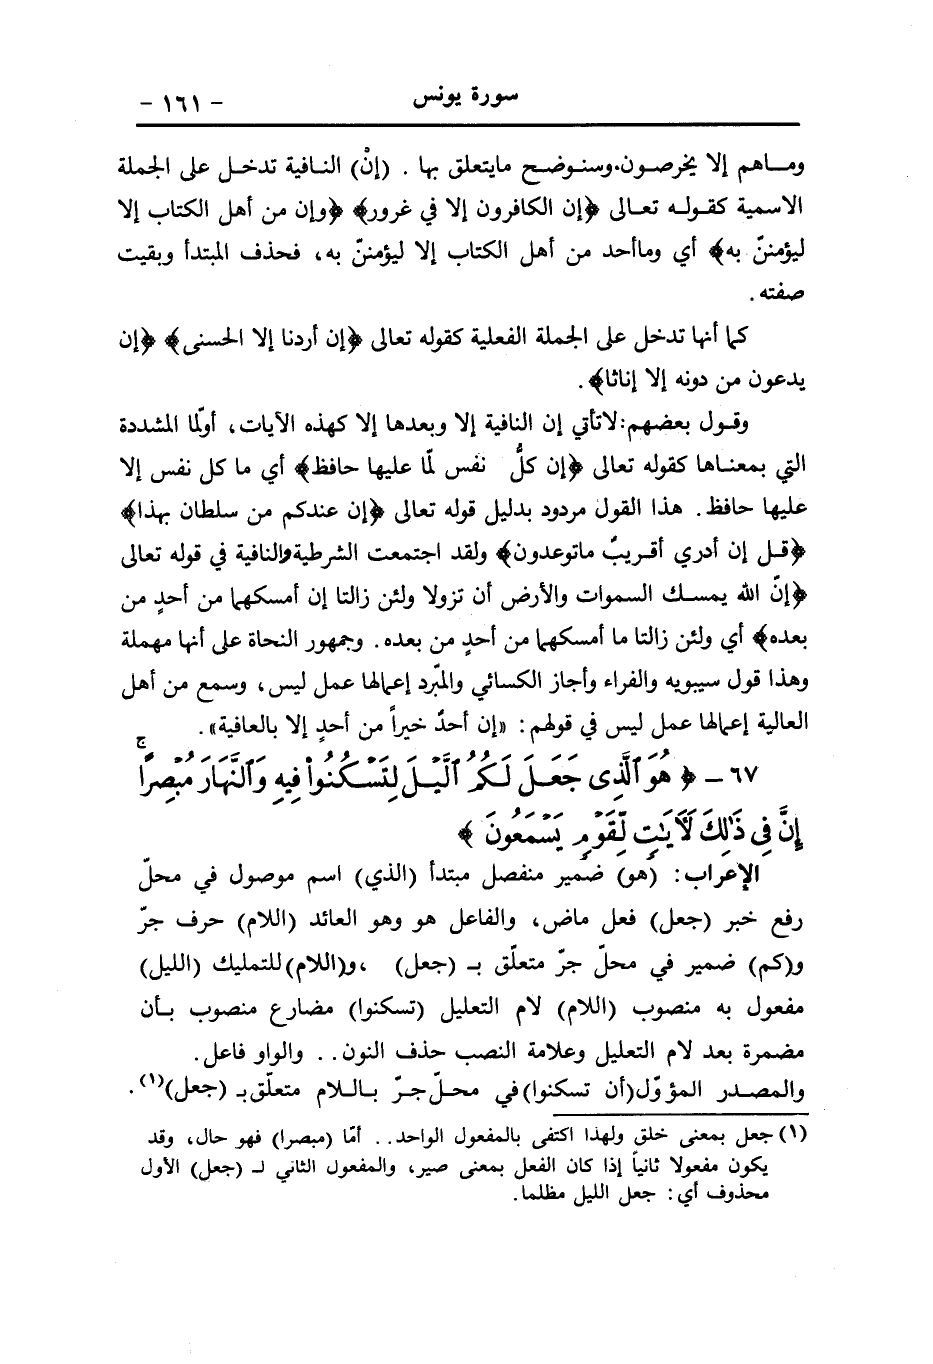 سورة يونس
- ١٦١ -
ومـاهم إلا يخرصون.وسنوضح مايتعلق بها . (إنْ) النافية تدخل على الجملة
الاسمية كقوله تعالى ﴿إن الكافرون إلا في غرور﴾ ﴿وإن من أهل الكتاب إلا
ليؤمننّ به﴾ أي وماأحد من أهل الكتاب إلا ليؤمننّ به، فحذف المبتدأ وبقيت
صفته .
كما أنها تدخل على الجملة الفعلية كقوله تعالى ﴿إن أردنا إلا الحسنى﴾ ﴿إن
يدعون من دونه إلا إناثا﴾ .
وقول بعضهم:لاتأتي إن النافية إلا وبعدها إلا كهذه الآيات، أولّما المشددة
التي بمعناها كقوله تعالى ﴿إن كلُّ نفس لمّا عليها حافظ﴾ أي ما كل نفس إلا
عليها حافظ. هذا القول مردود بدليل قوله تعالى ﴿إن عندكم من سلطان بهذا﴾
﴿قل إن أدري أقريبٌ ماتوعدون﴾ ولقد اجتمعت الشرطية والنافية في قوله تعالى
﴿إنّ الله يمسك السموات والأرض أن تزولا ولئن زالتا إن أمسكهما من أحدٍ من
بعده﴾ أي ولئن زالتا ما أمسكهما من أحدٍ من بعده. وجمهور النحاة على أنها مهملة
وهذا قول سيبويه والفراء وأجاز الكسائي والمبّرد إعمالها عمل ليس، وسمع من أهل
العالية إعمالها عمل ليس في قولهم: «إن أحدٌ خيراً من أحدٍ إلا بالعافية».
٦٧ - ﴿ هُوَ ٱلَّذِى جَعَلَ لَكُمُ ٱلَّيْلَ لِتَسْكُنُوا۟ فِيهِ وَٱلنَّهَارَ مُبْصِرًا ۚ
إِنَّ فِى ذَٰلِكَ لَـَٔايَـٰتٍ لِّقَوْمٍ يَسْمَعُونَ ﴾
الإعراب: (هو) ضمير منفصل مبتدأ (الذي) اسم موصول في محلّ
رفع خبر (جعل) فعل ماض، والفاعل هو وهو العائد (اللام) حرف جرّ
و(كم) ضمير في محلّ جرّ متعلّق بـ (جعل) ،و(اللام)للتمليك (الليل)
مفعول به منصوب (اللام) لام التعليل (تسكنوا) مضارع منصوب بأن
مضمرة بعد لام التعليل وعلامة النصب حذف النون.. والواو فاعل.
والمصدر المؤوّل(أن تسكنوا)في محلّ جرّ باللام متعلّق بـ (جعل)(١).
(١) جعل بمعنى خلق ولهذا اكتفى بالمفعول الواحد.. أمّا (مبصرا) فهو حال، وقد
يكون مفعولا ثانياً إذا كان الفعل بمعنى صير، والمفعول الثاني لـ (جعل) الأول
محذوف أي: جعل الليل مظلما.